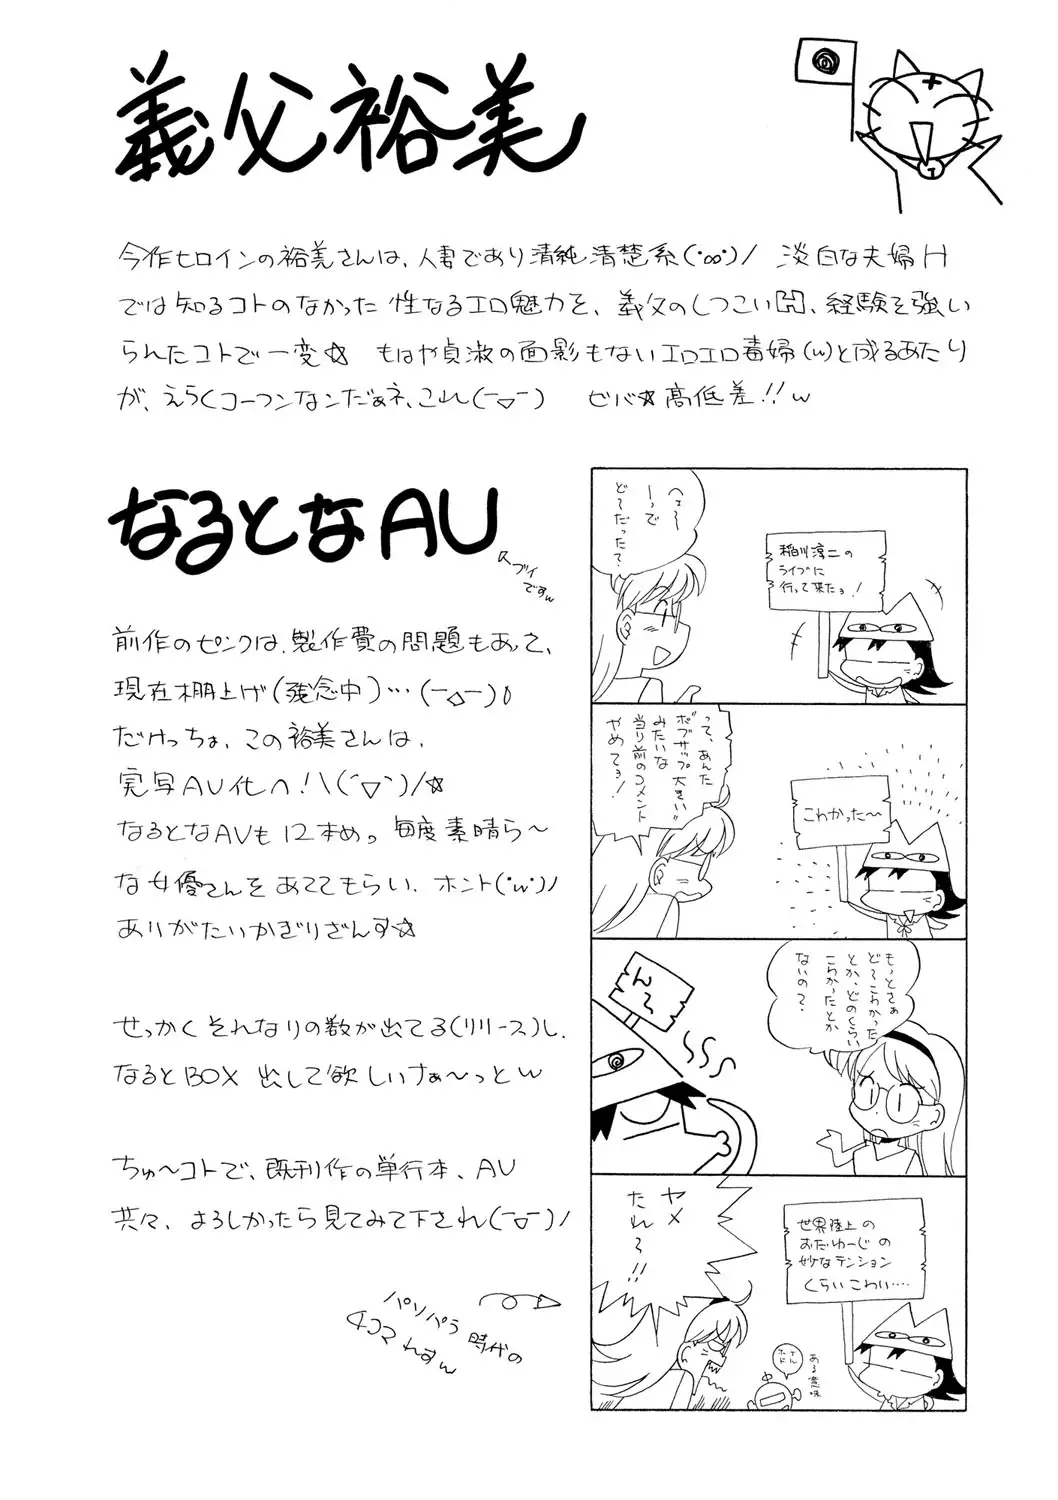 義父裕美
今作ヒロインの裕美さんは、人妻であり清純清楚系(・∞・)/ 淡白な夫婦H
では知るコトのなかった 性なるエロ魅力を、義父のしつこい、経験を強い
られたコトで一変☆ もはや貞淑の面影もないエロエロ毒婦(w)と成るあたり
が、えらくコーフンなンだぁネ、これ(ー▽ー) ビバ☆高低差!!w
なるとなAU
スブイ
ですw
前作のピンクは、製作費の問題もあって、
現在棚上げ(残念中)…(ー△ー)0
だけっちょ、この裕美さんは、
実写AV化へ!\(´▽`)/☆
なるとなAVも12本めっ 毎度素晴ら〜
な女優さんをあててもらい、ホント('w')/
ありがたいかぎりざんす☆
せっかくそれなりの数が出てる(リリース)し、
なるとBOX 出して欲しいけぁ〜っとw
ちゅ〜コトで、既刊作の単行本、AU
共々、よろしかったら見てみて下され(ー▽ー)/
パソパラ時代の
4コマれすw
へぇ〜
ーって
ど〜だった?
稲川淳二の
ライブに
行って来たョ!
って、あんた
ボブサップ大きい”
みたいな
当り前のコメント
やめてョ!
こわかった〜
もっとさぁ
ど〜こわかった
とか、どのくらい
こわかったとか
ないの?
ん〜
ヤメ
たれ〜!!
世界陸上の
おだゆーじの
妙なテンション
くらいこわい‥‥
ナル
ホド
ある意味